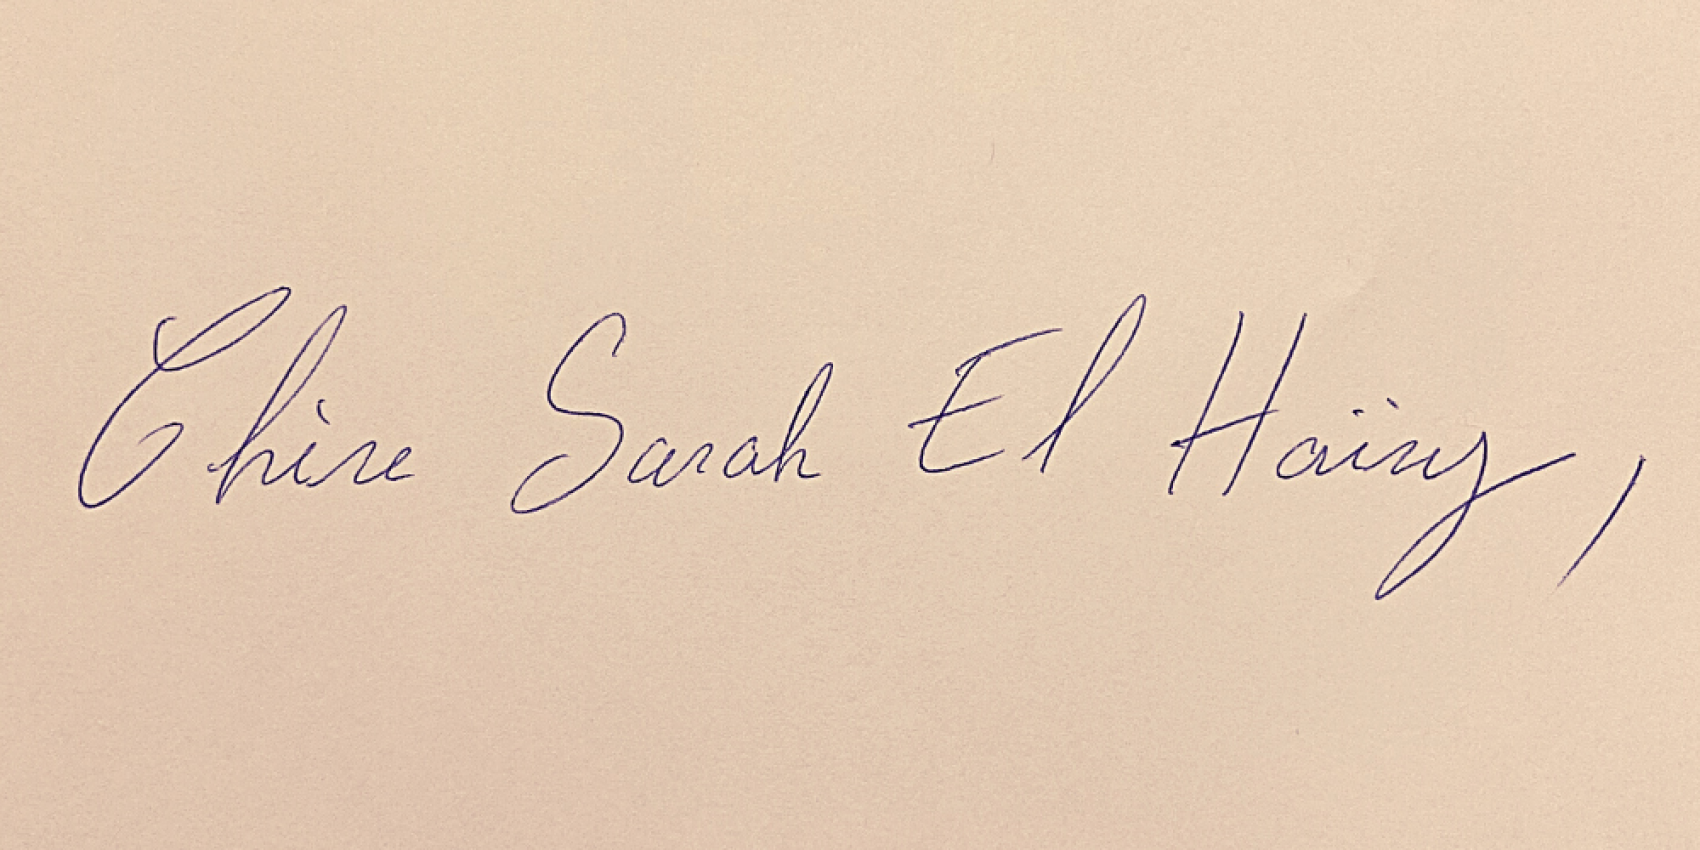 Chère Sarah El Haïry,